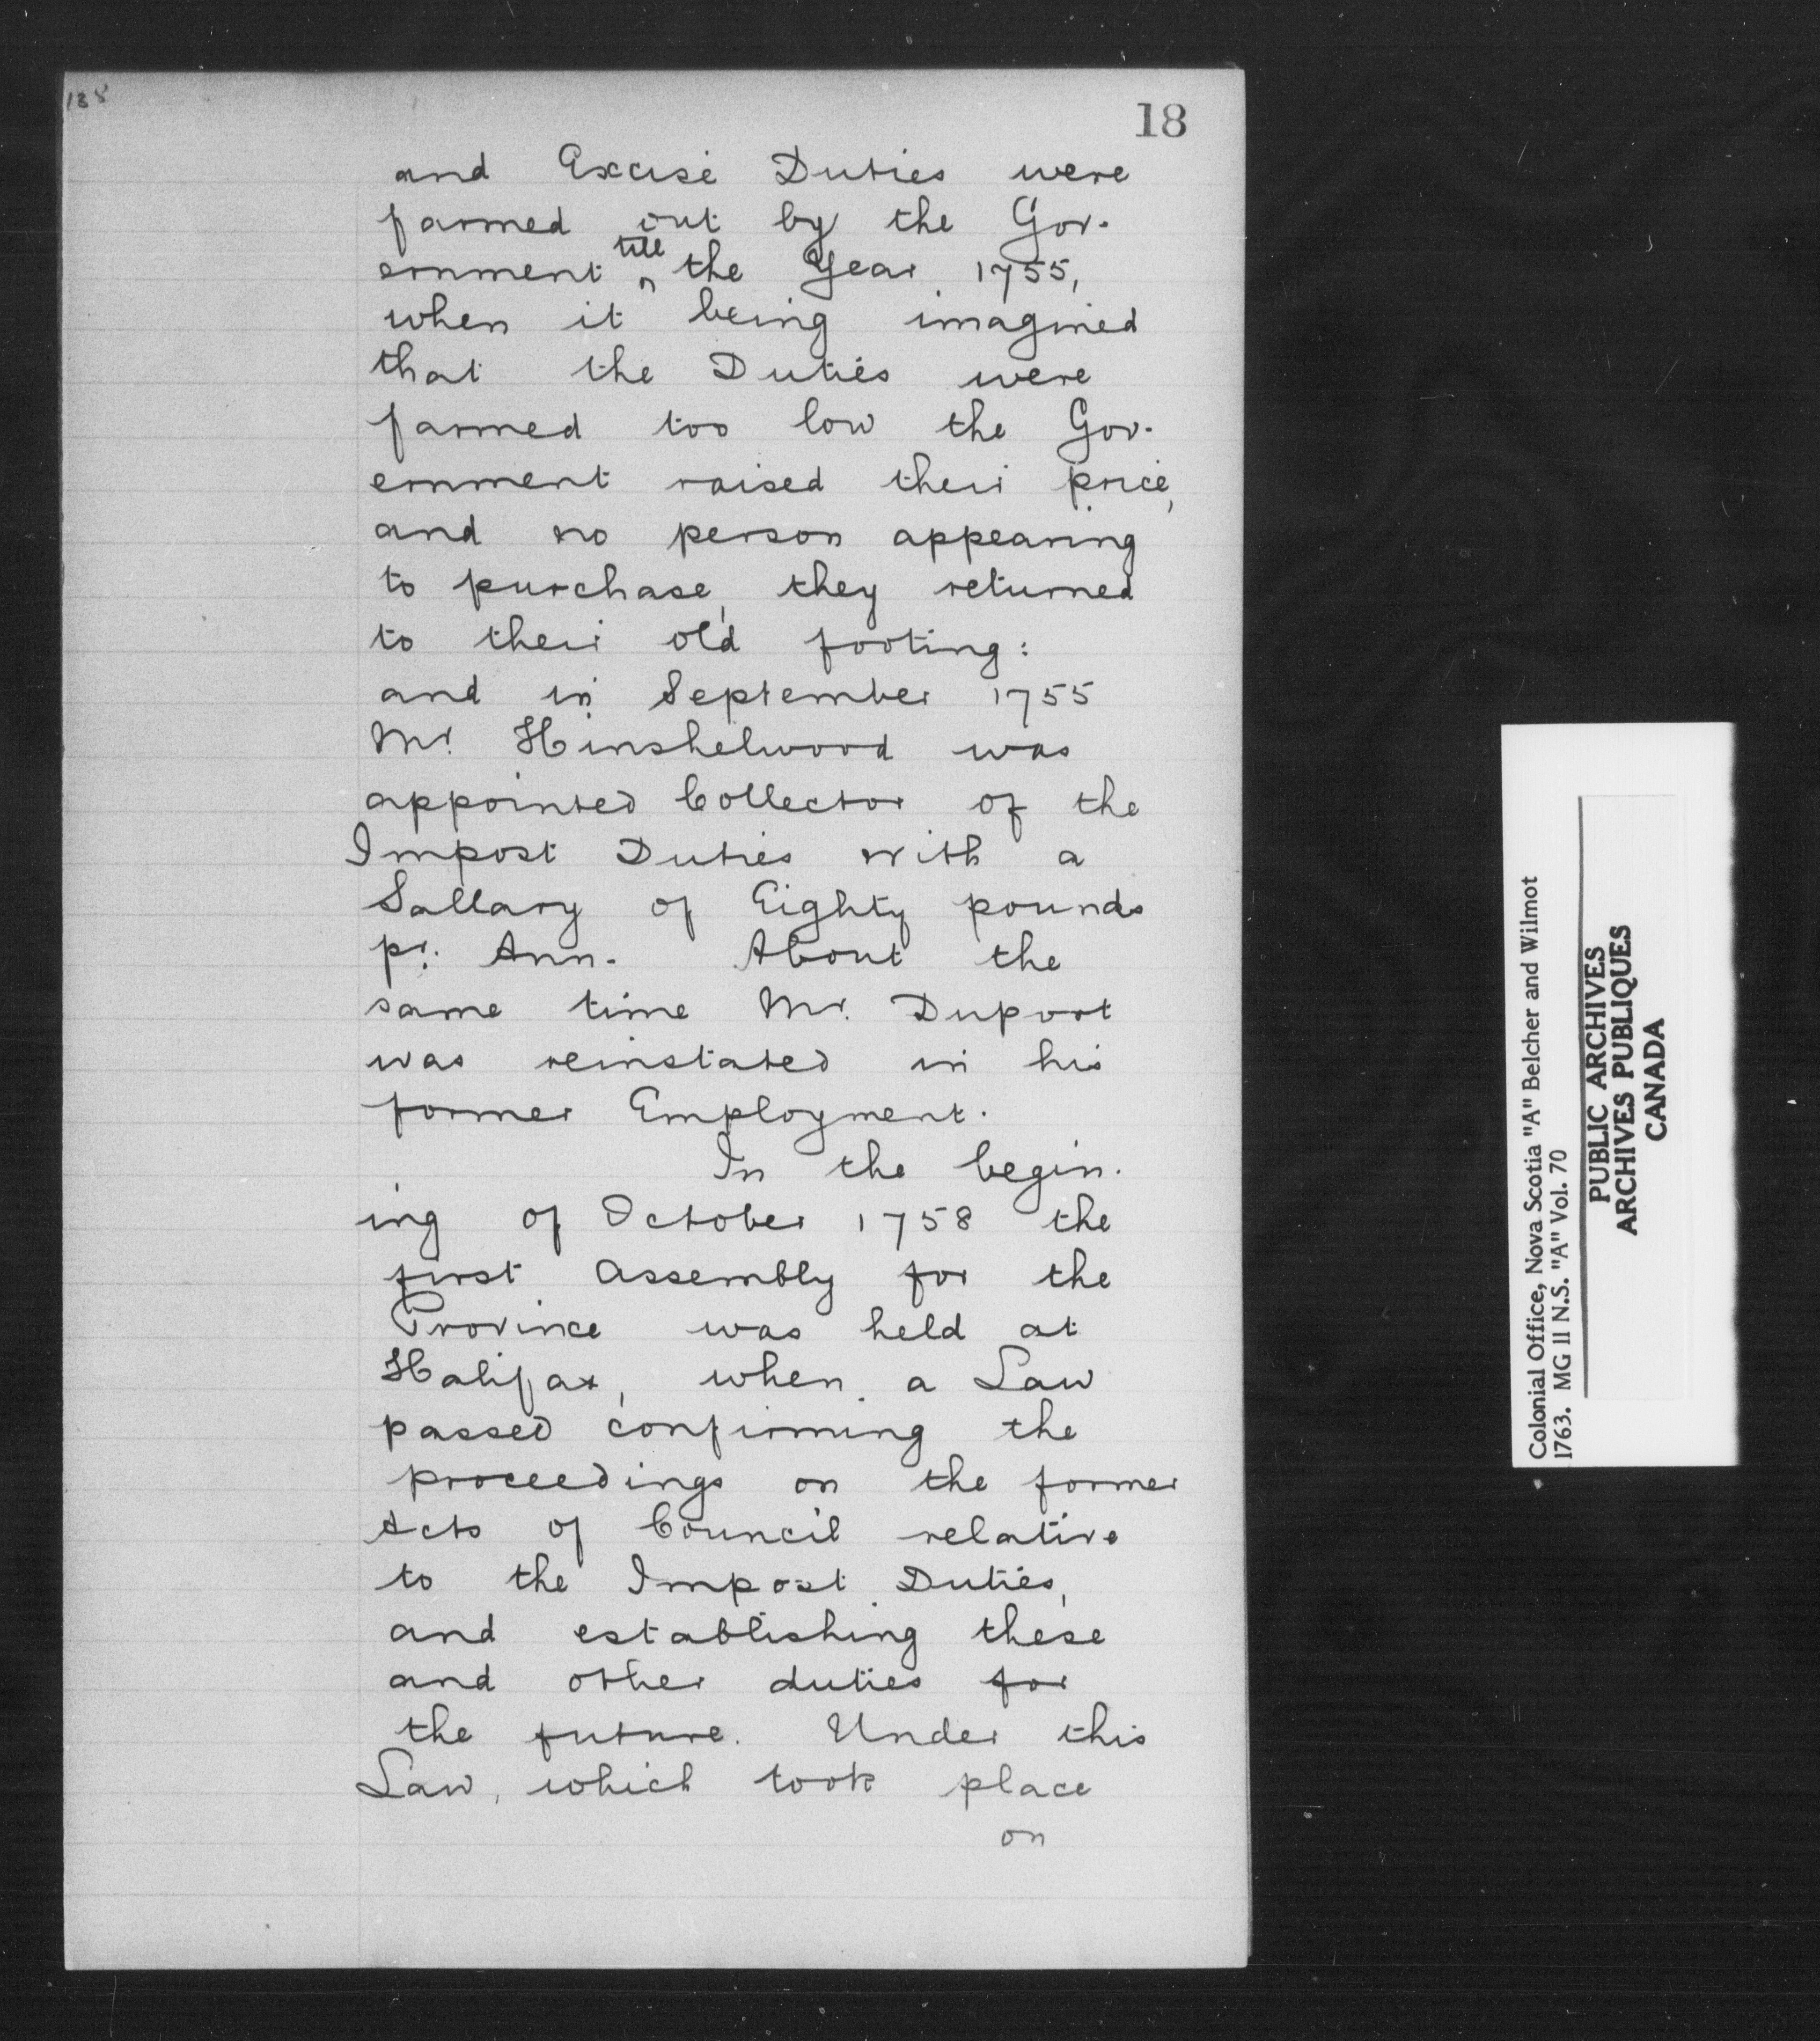 138
18
and Excise Duties were
farmed out by the Gov-
ernment till the Year 1755,
when it being imagined
that the Duties were
farmed too low the Gov-
ernment raised their price,
and no person appearing
to purchase, they returned
to their old footing:
and in September 1755
Mr. Hinshelwood was
appointed Collector of the
Impost Duties with a
Sallary of Eighty pounds
pr. Ann. About the
same time Mr. Duport
was reinstated in his
former Employment.
In the begin-
ing of October 1758 the
first Assembly for the
Province was held at
Halifax, when a Law
passed confirming the
proceedings on the former
Acts of Council relative
to the Impost Duties,
and establishing these
and other duties for
the future. Under this
Law, which took place
on
Colonial Office, Nova Scotia "A" Belcher and Wilmot
1763. MG 11 N.S. "A" Vol. 70
PUBLIC ARCHIVES
ARCHIVES PUBLIQUES
CANADA